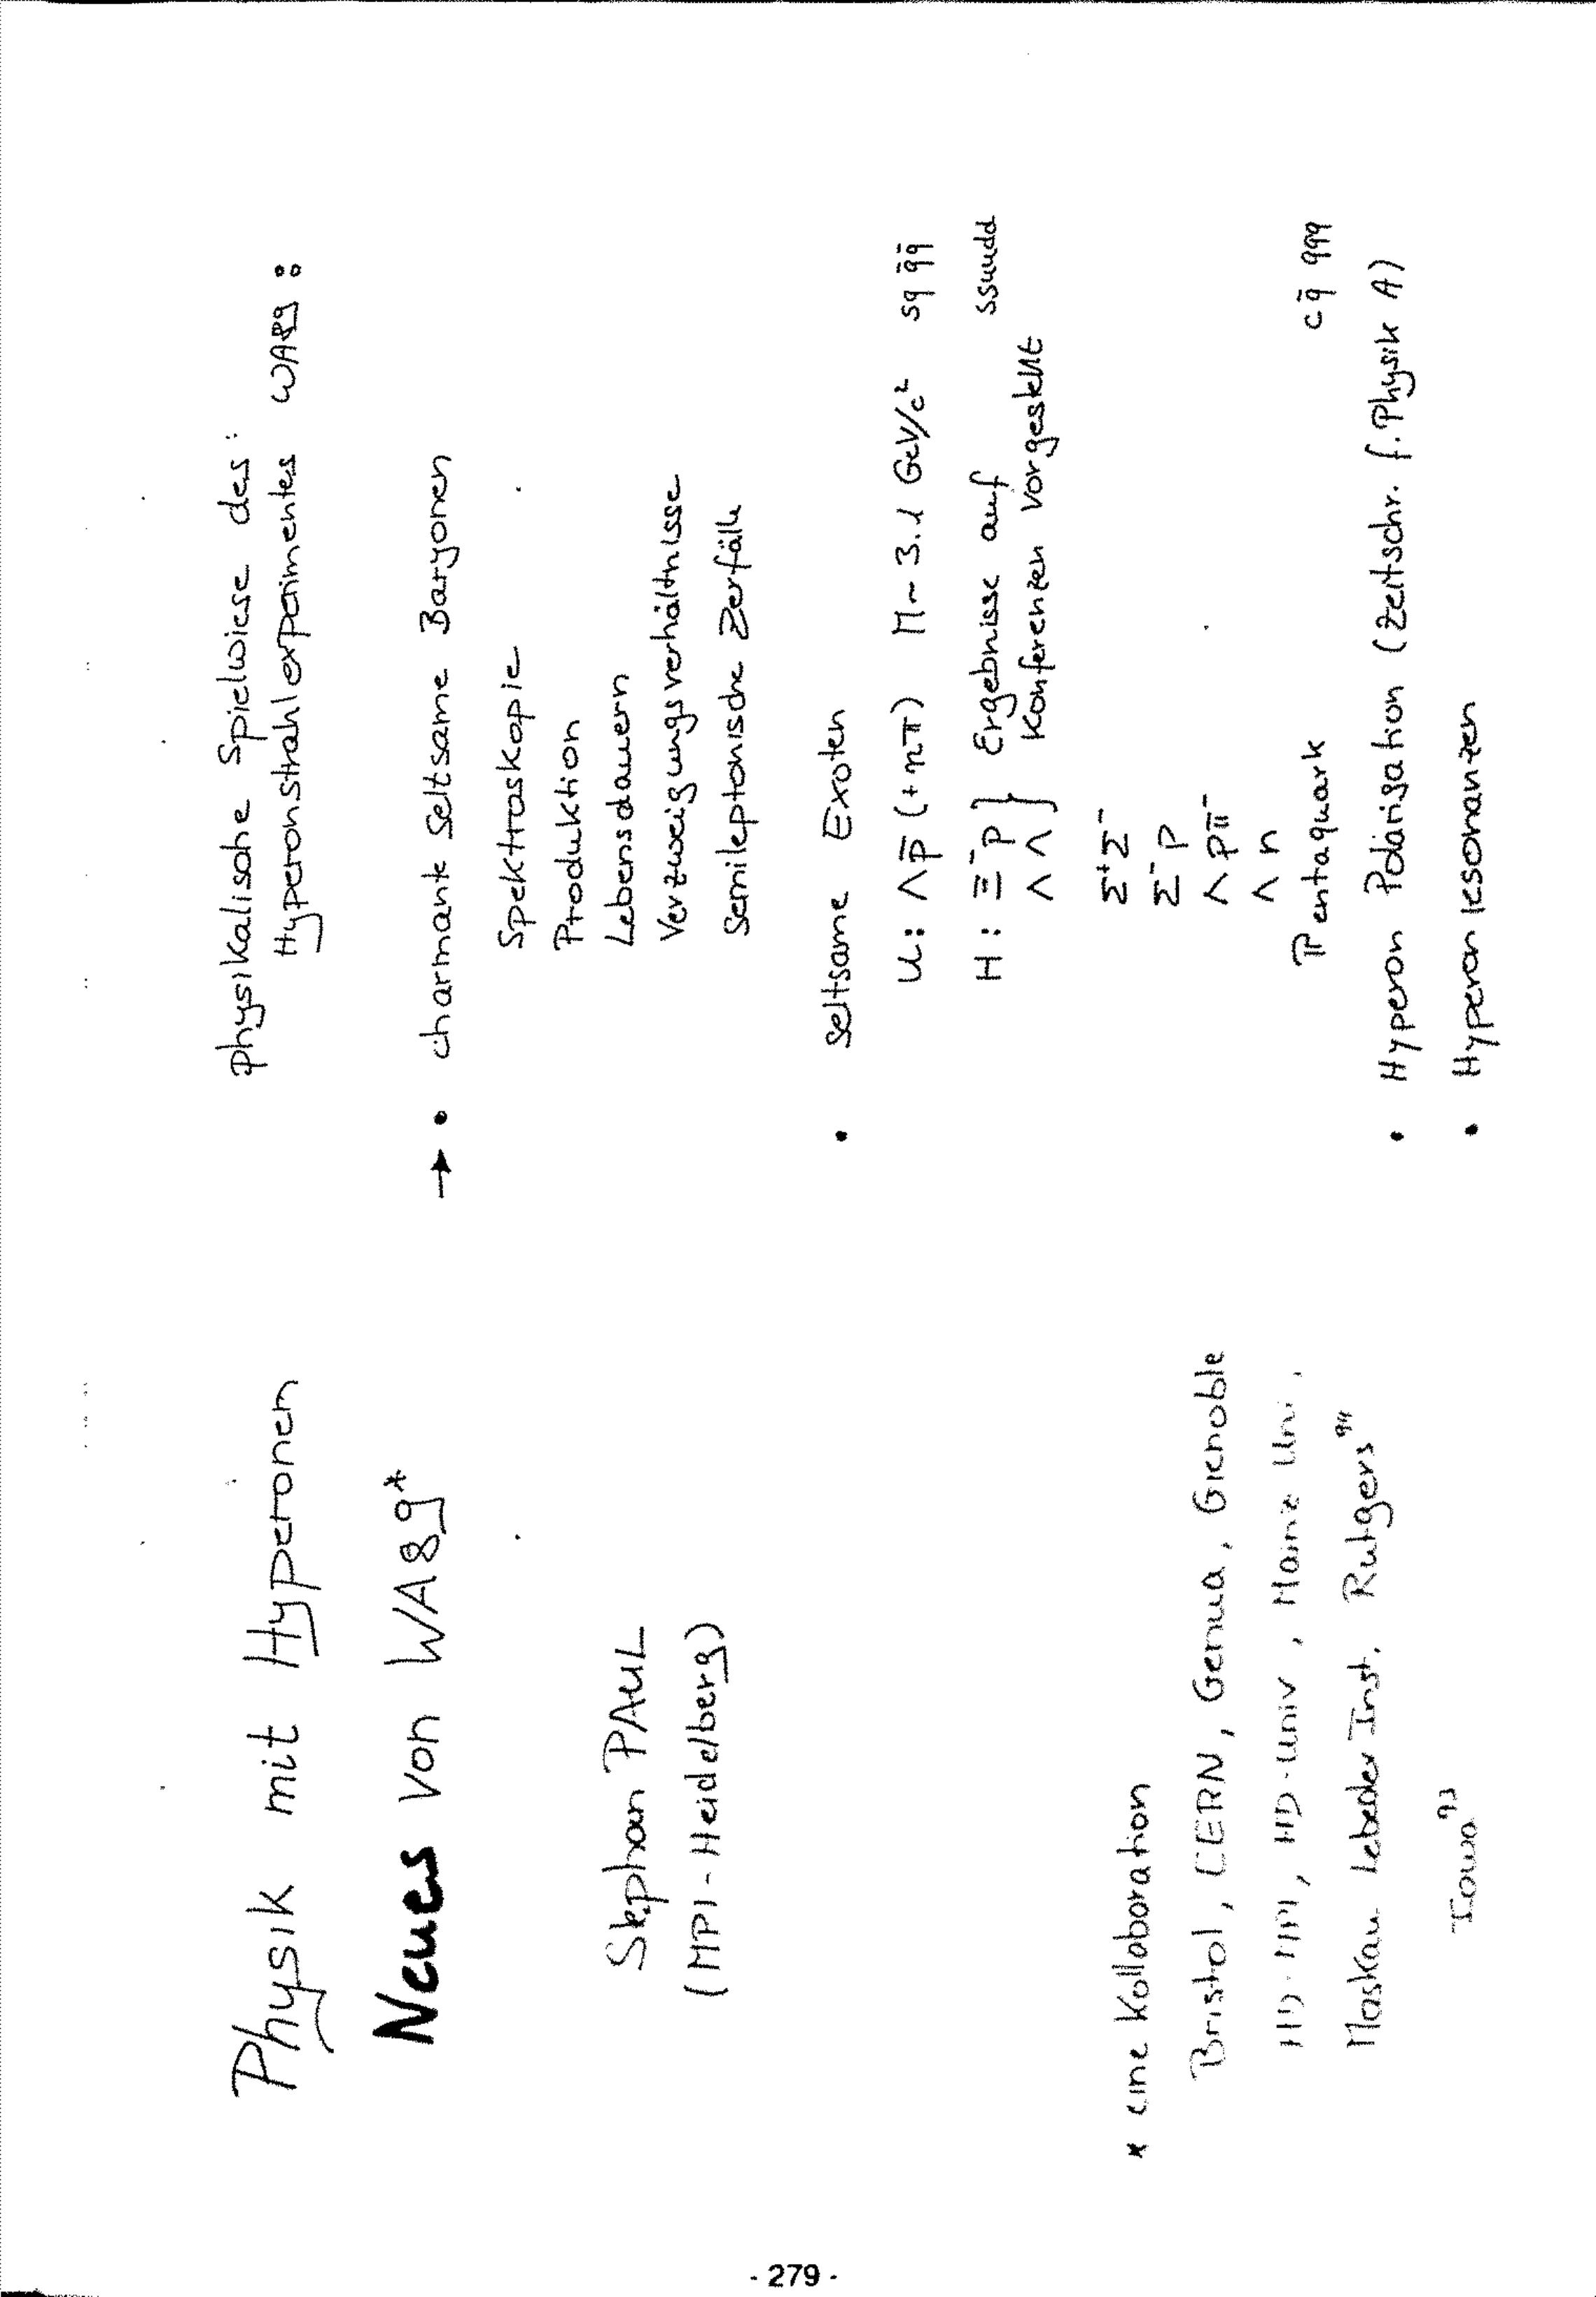 Physik mit Hyperonen
Neues von WA89*
Stephan PAUL
(MPI - Heidelberg)
* eine Kollaboration
Bristol, CERN, Genua, Grenoble
HD-MPI, HD-Univ, Mainz Uni,
Moskau Lebedev Inst. Rutgers⁹⁴
Iowa⁹³
physikalische Spielwiese des:
Hyperonstrahlexperimentes WA89:
→ • charmant seltsame Baryonen
Spektroskopie
Produktion
Lebensdauern
Verzweigungsverhältnisse
Semileptonische Zerfälle
• seltsame Exoten
U: Λp̄ (+nπ) M~3.1 GeV/c² sq q̄q̄
H: Ξ⁻p } Ergebnisse auf ssuudd
ΛΛ } Konferenzen vorgestellt
Σ⁺Σ⁻
Σ⁻p
Λpπ⁻
Λn
Pentaquark cq̄ qqq
• Hyperon Polarisation (Zeitschr. f. Physik A)
• Hyperonresonanzen
- 279 -